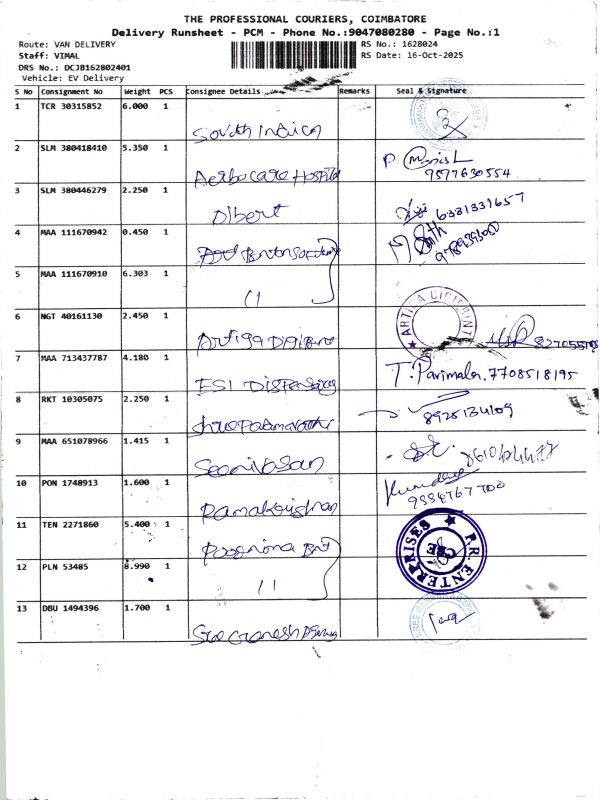 THE PROFESSIONAL COURIERS, COIMBATORE
Delivery Runsheet - PCM - Phone No.:9047080280 - Page No.:1
Route: VAN DELIVERY
RS No.: 1628024
Staff: VIMAL
RS Date: 16-Oct-2025
DRS No.: DCJB162802401
Vehicle: EV Delivery
S No Consignment No Weight PCS Consignee Details Remarks Seal & Signature
1 TCR 30315852 6.000 1
South India
2 SLM 380418410 5.350 1
Hospital
9577630554
3 SLM 380446279 2.250 1
Dlbert 6381331657
4 MAA 111670942 0.450 1
5 MAA 111670910 6.303 1
11
6 NGT 40161130 2.450 1
ARTIGA DIGIPRINT
7 MAA 713437787 4.180 1
ESI Dispensary T. Parimala. 7708518195
8 RKT 10305075 2.250 1
8925134109
9 MAA 651078966 1.415 1
Seenivasan
10 PON 1748913 1.600 1
Ramakrishnan 9884767700
11 TEN 2271860 5.400 1
Poornima
P.R. ENTERPRISES
CBE
12 PLN 53485 8.990 1
11
13 DBU 1494396 1.700 1
Sree Ganesh